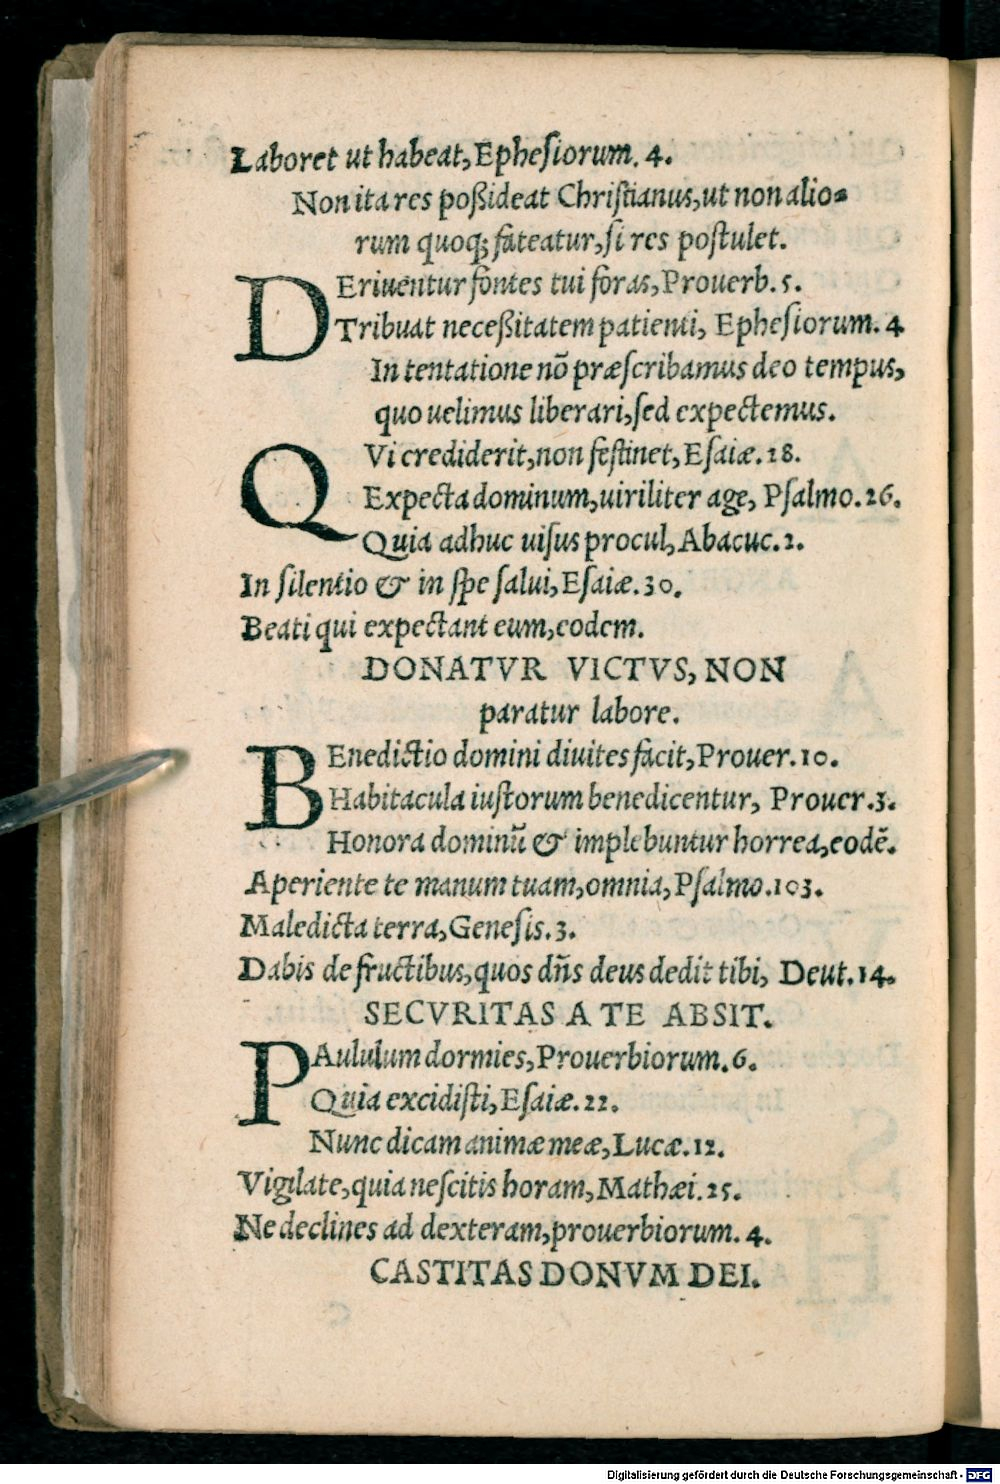 Laboret ut habeat, Ephesiorum. 4.
Non ita res poßideat Christianus, ut non alio-
rum quoq; fateatur, si res postulet.
DEriuentur fontes tui foras, Prouerb. 5.
Tribuat neceßitatem patienti, Ephesiorum. 4
In tentatione nõ præscribamus deo tempus,
quo uelimus liberari, sed expectemus.
QVi crediderit, non festinet, Esaiæ. 28.
Expecta dominum, uiriliter age, Psalmo. 26.
Quia adhuc uisus procul, Abacuc. 2.
In silentio & in spe salui, Esaiæ. 30.
Beati qui expectant eum, eodem.
DONATVR VICTVS, NON
paratur labore.
BEnedictio domini diuites facit, Prouer. 10.
Habitacula iustorum benedicentur, Prouer. 3.
Honora dominũ & implebuntur horrea, eodẽ.
Aperiente te manum tuam, omnia, Psalmo. 103.
Maledicta terra, Genesis. 3.
Dabis de fructibus, quos dñs deus dedit tibi, Deut. 14.
SECVRITAS A TE ABSIT.
PAululum dormies, Prouerbiorum. 6.
Quia excidisti, Esaiæ. 22.
Nunc dicam animæ meæ, Lucæ. 12.
Vigilate, quia nescitis horam, Mathæi. 25.
Ne declines ad dexteram, prouerbiorum. 4.
CASTITAS DONVM DEI.
Digitalisierung gefördert durch die Deutsche Forschungsgemeinschaft - DFG